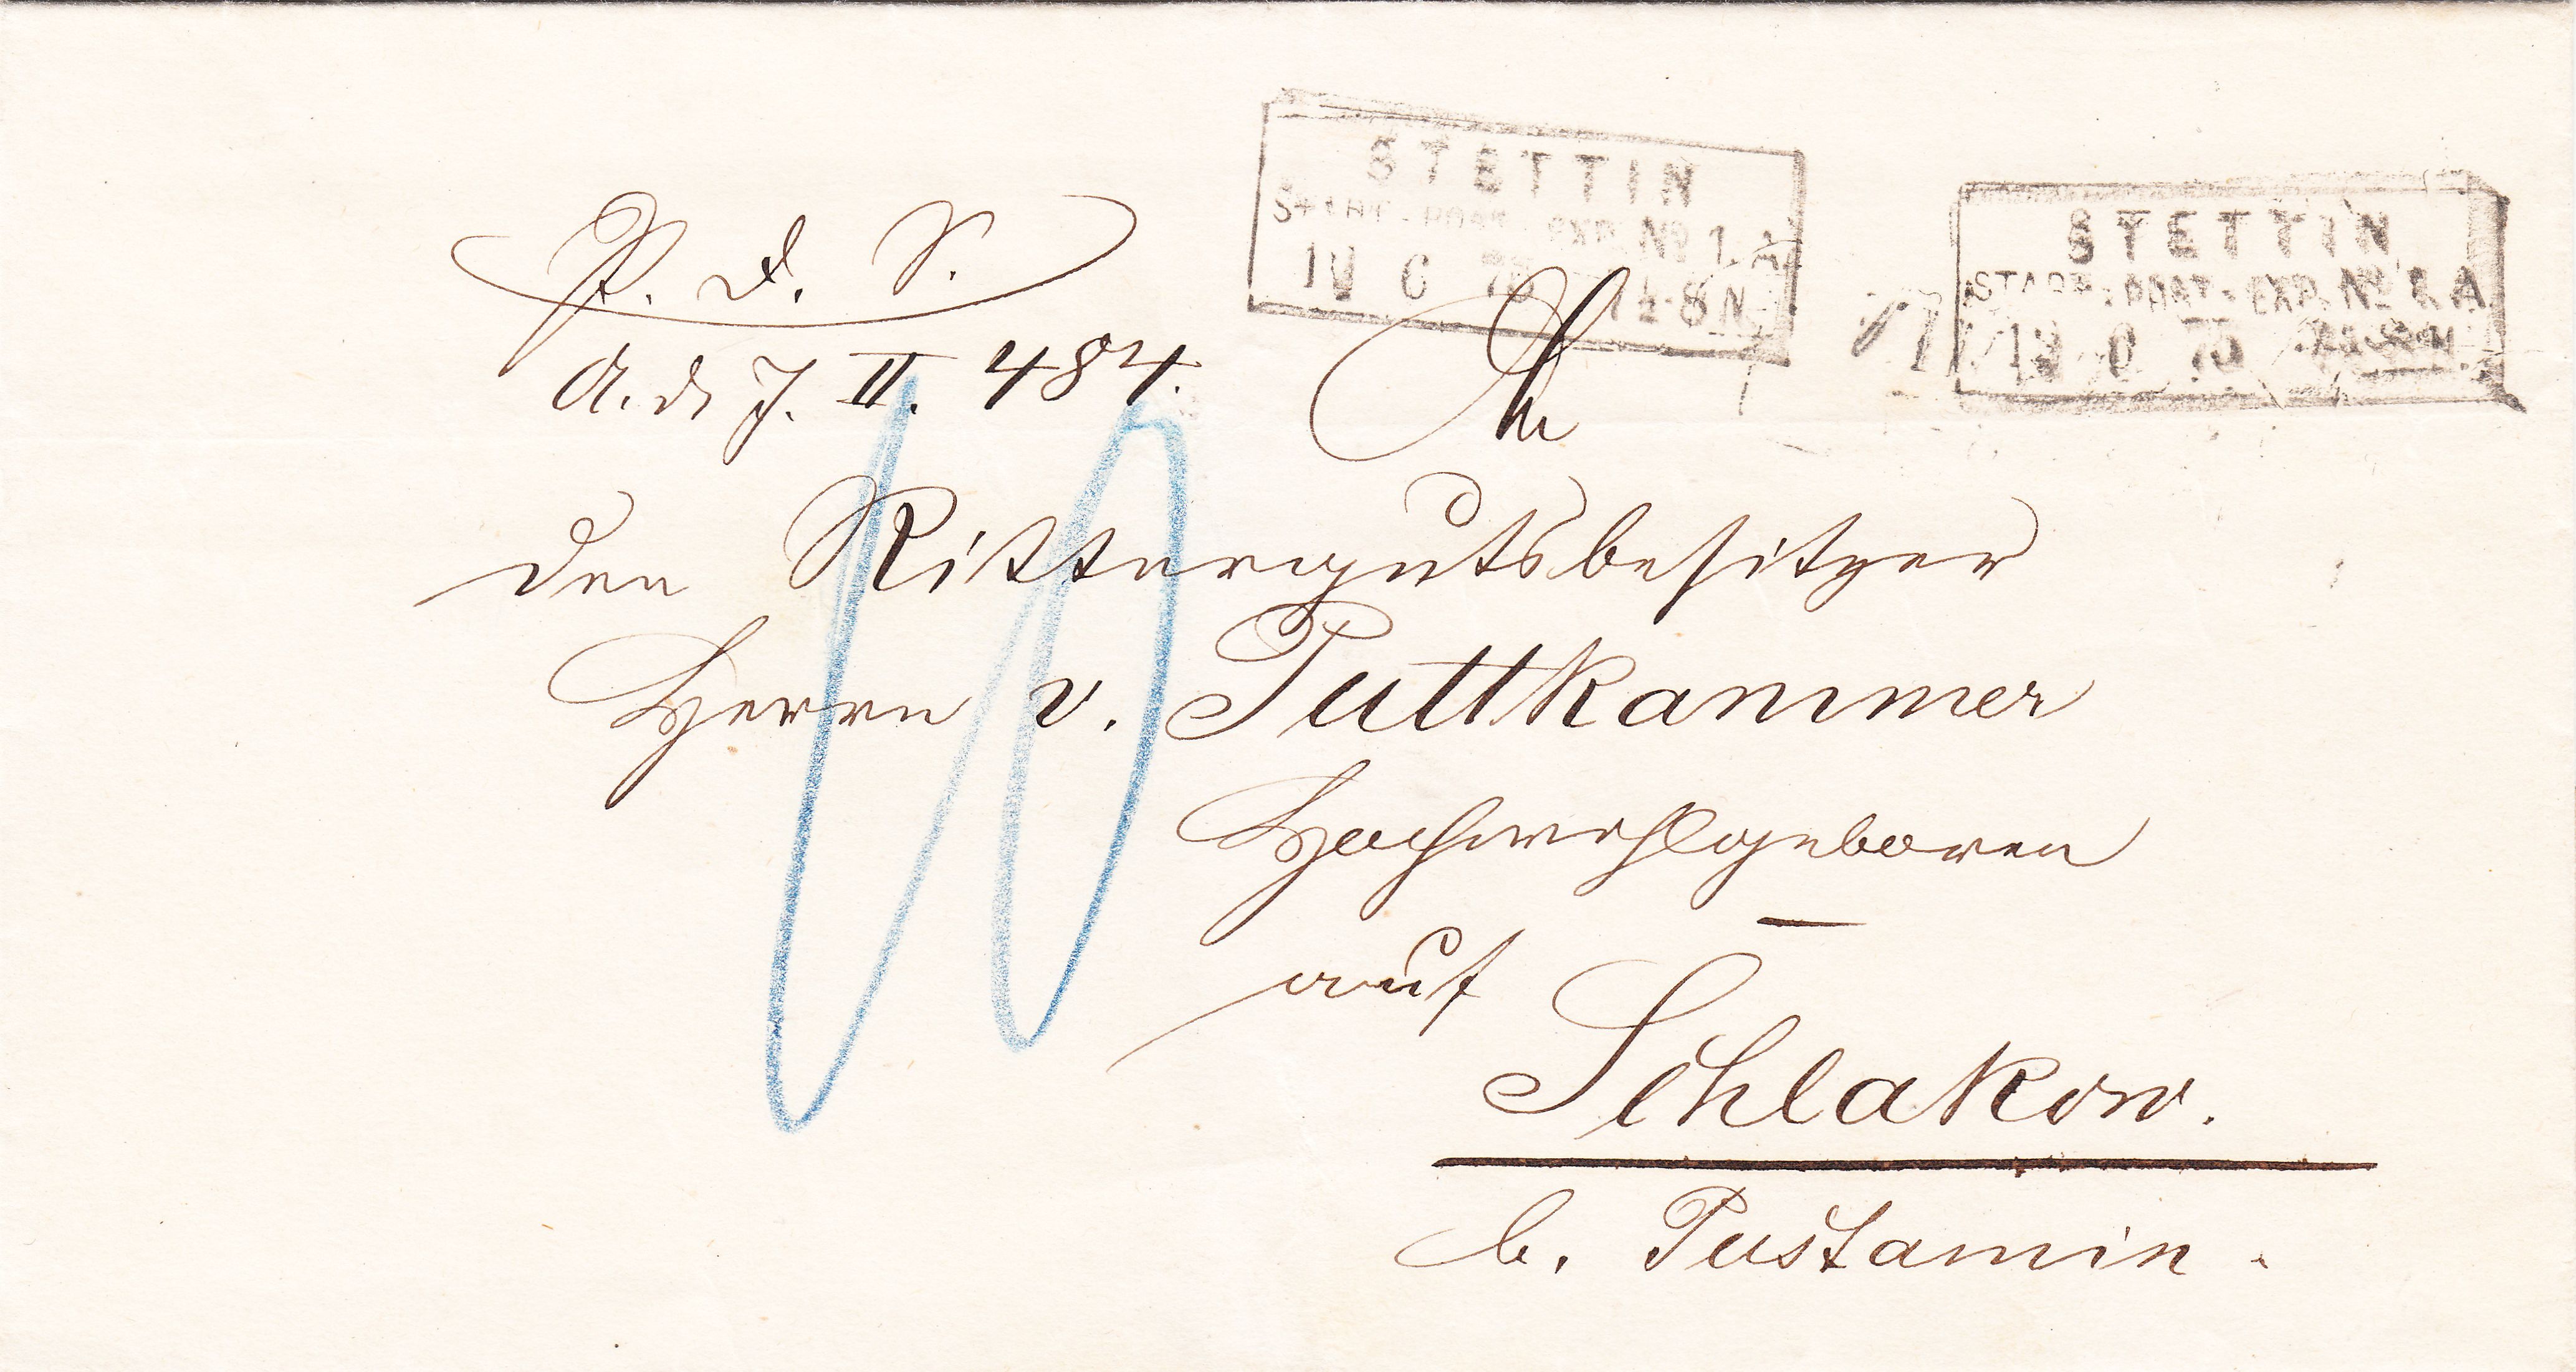 STETTIN
STADT-POST-EXP. No 1. A
75 7½-8 N
STETTIN
STADT-POST-EXP. No 1. A
75
P. D. S.
A. d. J. II. 484.
An
den Rittergutsbesitzer
Herrn v. Puttkammer
Hochwohlgeboren
auf
Schlakow.
b. Pustamin.
10